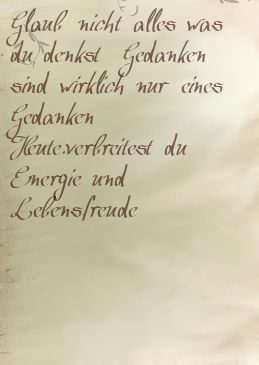 Glaub nicht alles was
du denkst Gedanken
sind wirklich nur eines
Gedanken
Heute verbreitest du
Energie und
Lebensfreude